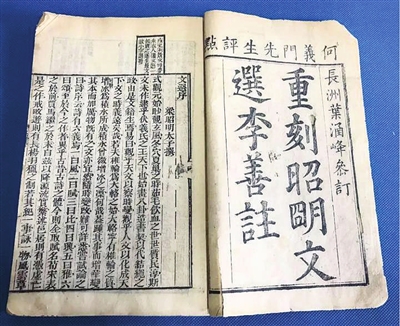 何義門先生評點
長洲葉涵峰參訂
重刻昭明文
選李善註
文選序
梁昭明太子撰
式觀元始眇覿玄風冬穴夏巢之時茹毛飲血之世世質民淳斯
文未作逮乎伏羲氏之王天下也始畫八卦造書契以代結繩之
政由是文籍生焉易曰觀乎天文以察時變觀乎人文以化成天
下文之時義遠矣哉若夫椎輪為大輅之始大輅寧有椎輪之質
增冰為積水所成積水曾微增冰之凜何哉蓋踵其事而增華變
其本而加厲物既有之文亦宜然隨時變改難可詳悉嘗試論之
曰詩序云詩有六義焉一曰風二曰賦三曰比四曰興五曰雅六
曰頌至於今之作者異乎古昔古詩之體今則全取賦名荀宋表
之於前賈馬繼之於末自茲以降源流寔繁述邑居則有憑虛亡
是之作戒畋遊則有長楊羽獵之制若其紀一事詠一物風雲草